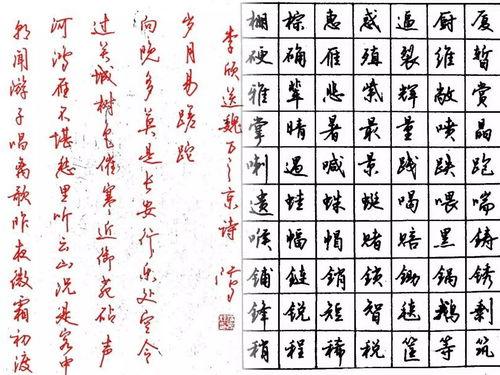 朝闻游子唱离歌昨夜微霜初渡
河鸿雁不堪愁里听云山况是客中
过关城树色催寒近御苑砧声
向晚多莫是长安行乐处空令
岁月易蹉跎
李颀送魏万之京诗
棚棕惠惑逼厨厦
硬确雁殖裂雄暂
雅辈悲紫辉敞赏
掌晴暑最量喷晶
喇遇喊景践跌跑
遗蛙蛛蜓喝喂喘
喉幅帽赌赔黑铸
铺链销锁锄锅锈
锋锐短智毯鹅剩
稍程稀税筐等筑